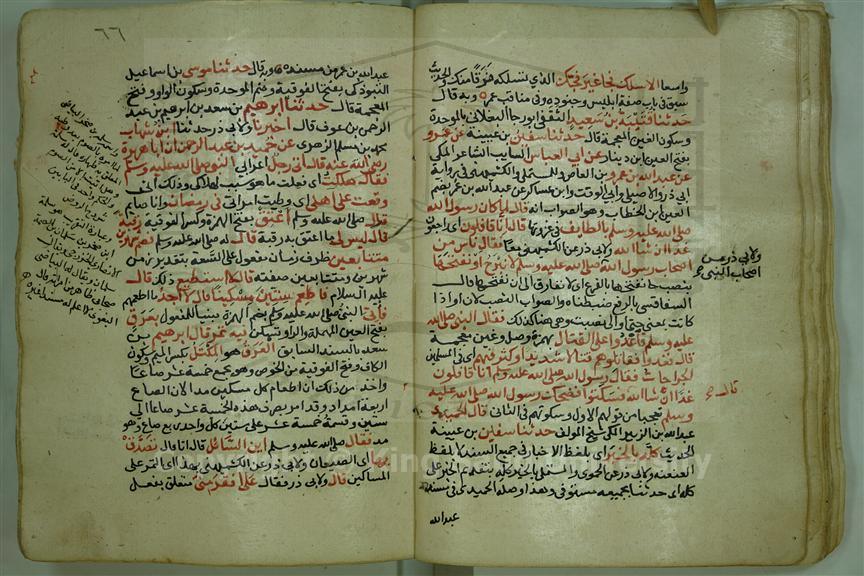 واسعا الا سلك فجا غير فجك الذي تسلكه فرقا منك والحديث
سبق في باب صفة ابليس وجنوده وفي مناقب عمر وبه قال
حدثنا قتيبة بن سعيد الثقفي ابو رجا البغلاني بالموحدة
وسكون الغين المعجمة قال حدثنا سفين بن عيينة عن عمرو
بفتح العين ابن دينار عن ابي العباس السايب الشاعر المكي
عن عبد الله بن عمرو بن العاص وللمستملي والكشميهني في رواية
ابي ذر والاصيلي وابي الوقت وابن عساكر عن عبد الله بن عمر بضم
العين بن الخطاب وهو الصواب انه قال لما كان رسول الله
صلى الله عليه وسلم بالطايف في غزوتها قال انا قافلون اي راجعون
غدا ان شا الله ولابي ذر عن الكشميهني معنا فقال ناس من
اصحاب رسول الله صلى الله عليه وسلم لا نبرح او نفتحها
بنصب حا نفتحها بالفرع اي لا نفارق الى ان نفتحها قال
السفاقسي بالرفع ضبطناه والصواب النصب لان او اذا
كانت بمعنى حتى او الى نصبت وهي هنا كذلك فقال النبي صلى الله
عليه وسلم فاغدوا على القتال بهمزة وصل وغين معجمة
قال فغدوا فقاتلوهم قتالا شديدا وكثر فيهم اي في المسلمين
الجراحات فقال رسول الله صلى الله عليه وسلم انا قافلون
غدا ان شا الله فسكتوا فضحك رسول الله صلى الله عليه
وسلم تعجبا من قولهم الاول وسكوتهم في الثاني قال الحميدي
عبد الله بن الزبير المكي شيخ المولف حدثنا سفين بن عيينة
الحديث كله بالخبر اي بلفظ الاخبار في جميع السند لا بلفظ
العنعنة ولابي ذر عن الحموي والمستملي بالخبر كله بتقديم الخبر على
كله اي حدثنا بجميعه مستوفى وهذا وصله الحميدي في مسند
عبد الله
ولابي ذر عن
اصحاب النبي
قال
٦٦
عبد الله بن عمر من مسنده وبه قال حدثنا موسى بن اسماعيل
التبوذكي بفتح الفوقية وضم الموحدة وسكون الواو وفتح
المعجمة قال حدثنا ابرهيم بن سعد بن ابرهيم بن عبد
الرحمن بن عوف قال اخبرنا ولابي ذر حدثنا ابن شهاب
محمد بن مسلم الزهري عن حميد بن عبد الرحمن ان ابا هريرة
رضي الله عنه قال اتى رجل اعرابي النبي صلى الله عليه وسلم
فقال هلكت اي فعلت ما هو سبب لهلاكي وذلك اني
وقعت على اهلي اي وطيت امراتي في رمضان وانا صايم
قال صلى الله عليه وسلم اعتق بفتح الهمزة وكسر الفوقية رقبة
قال ليس لي ما اعتق به رقبة قال له صلى الله عليه وسلم فصم شهرين
متتابعين ظرف زمان مفعول على السعة بتقدير زمن
شهرين ومتتابعين صفته قال لا استطيع ذلك قال
عليه السلام فاطعم ستين مسكينا قال لا اجد ما اطعمهم
فاتي النبي صلى الله عليه وسلم بضم الهمزة مبنيا للمفعول بعرق
بفتح العين المهملة والرا وتسكن فيه تمر قال ابرهيم بن
سعد بالسند السابق العرق هو المكتل بكسر الميم وسكون
الكاف وفتح الفوقية من الخوص وهو يجمع خمسة عشر صاعا
واخذ من ذلك ان اطعام كل مسكين مد لان الصاع
اربعة امداد وقد امر بصرف هذه الخمسة عشر صاعا الى
ستين وقسمة خمسة عشر على ستين كل واحد ربع صاع وهو
مد فقال صلى الله عليه وسلم اين السائل قال انا قال تصدق
بها اي الصيعان ولابي ذر عن الكشميهني بهذا اي التمر على
المساكين قال ولابي ذر فقال على افقر مني متعلق بفعل